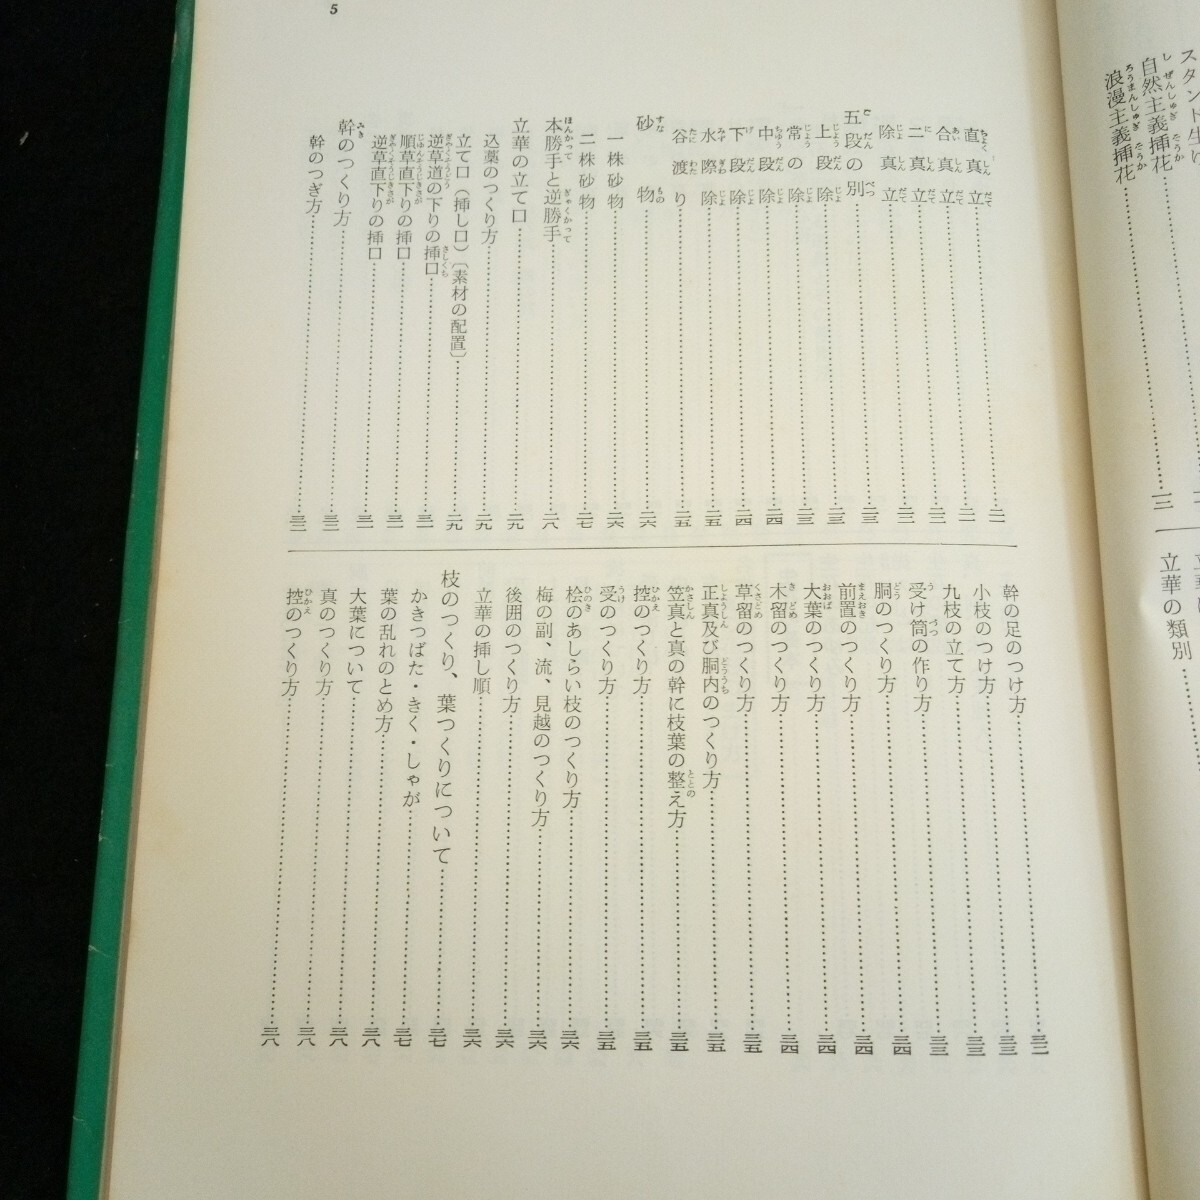 スタンド生け
自然主義挿花
浪漫主義挿花……一三
立華の類別……
5
直真立……二一
合真立……二一
二真立……二二
除真立……二二
五段の別……二三
上段除……二三
常の除……二三
中段除……二四
下段除……二四
水際除……二五
谷渡り……二五
砂物……二六
一株砂物……二六
二株砂物……二七
本勝手と逆勝手……二八
立華の立て口……二九
込藁のつくり方……二九
立て口（挿し口）〔素材の配置〕……二九
逆草道の下りの挿口……三一
順草直下りの挿口……三一
逆草直下りの挿口……三一
幹のつくり方……三二
幹のつぎ方……三二
幹の足のつけ方……三二
小枝のつけ方……三三
九枝の立て方……三三
受け筒の作り方……三三
胴のつくり方……三四
前置のつくり方……三四
大葉のつくり方……三四
木留のつくり方……三四
草留のつくり方……三五
正真及び胴内のつくり方……三五
笠真と真の幹に枝葉の整え方……三五
控のつくり方……三五
受のつくり方……三五
桧のあしらい枝のつくり方……三六
梅の副、流、見越のつくり方……三六
後囲のつくり方……三六
立華の挿し順……三六
枝のつくり、葉つくりについて……三七
かきつばた・きく・しゃが……三七
葉の乱れのとめ方……三八
大葉について……三八
真のつくり方……三八
控のつくり方……三八